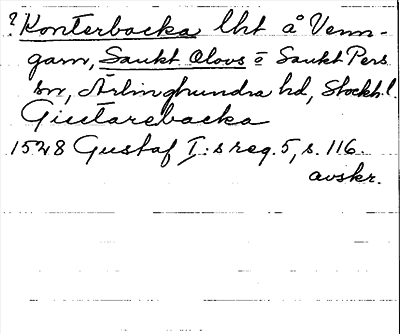 ? Konterbacka lht å Venn-
garn, Sankt Olovs o Sankt Pers
sn, Ärlinghundra hd, Stockh.l.
Giutarebacka
1528 Gustaf I:s reg. 5, s. 116.
avskr.